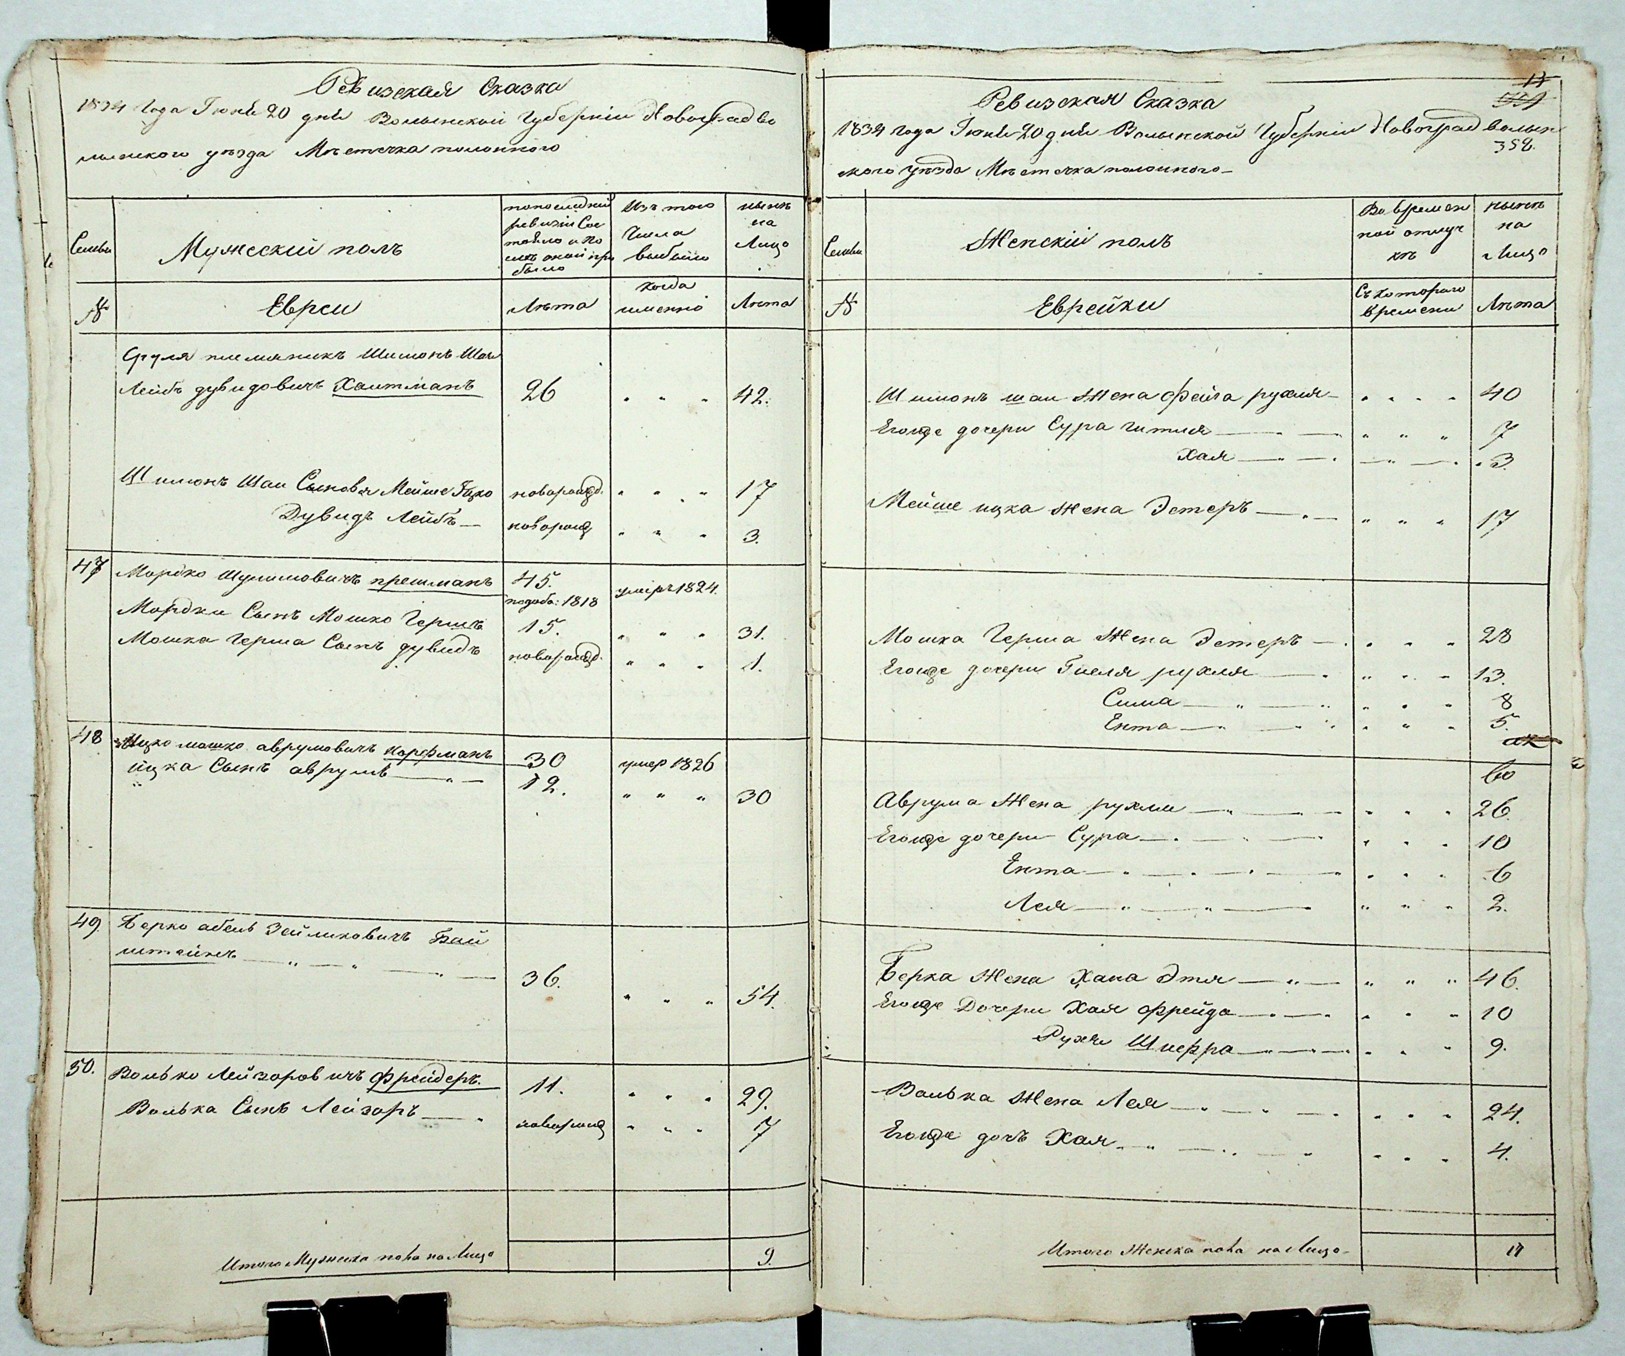 Ревизская Сказка
1834 года Іюня 20 дня Волынской Губерніи Новоградво
лынского уезда Мѣстечка полонного
Семьи
Мужеский полъ
по последней ревизіи Состояло и после оной прибыло
Изъ того Числа выбыло
ныне на Лицо
№
Евреи
Лѣта
когда именно
Лѣта
Сруля племяникъ Шимонъ Шаи
Лейбъ дувидовичъ Хаитманъ 26 " " " 42.
Шимонъ Шаи Сыновья Мейше Ицко новорожд. " " " 17
Дувидъ Лейбъ — новорожд " " " 3.
47 Мордко Шулимовичъ прешманъ 45. умеръ 1824.
1818
Мордки Сынъ Мошко Гершъ 15. " " " 31.
Мошка Герша Сынъ дувидъ новорожд. " " " 1.
48 Ицко мошко аврумовичъ 30 умер 1826
Ицка Сынъ аврумъ — " — 12. " " " 30
49 Берко абель Зейликовичъ Бай
штейнъ — " — " — " — 36. " " " 54.
50. Волько Лейзоровичъ Фрейдеръ. 11. " " " 29.
Волька Сынъ Лейзоръ — " новорожд " " " 7
Итого Мужеска пола на Лицо 9.
11
359
Ревизская Сказка
1834 года Іюня 20 дня Волынской Губерніи Новоград волын
358.
ского уѣзда Мѣстечка полонного —
Семьи
Женскій полъ
Во временной отлучкѣ
ныне на Лицо
№
Еврейки
Съ котораго времени
Лѣта
Шимонъ шаи Жена Фейга рухля — " " " 40
Егожде дочери Сура гитля — " " " 7
Хая — " " " 3.
Мейше ицка Жена Эстеръ — " " " 17
Мошка Герша Жена Эстеръ — " " " 28
Егожде дочери рухля — " " " 13.
Сима — " " " 8
Ента — " " " 5.
60
Аврума Жена рухли — " " " 26.
Егожде дочери Сура — " " " 10
Ента — " " " 6
Лея — " " " 2.
Берка Жена Хана Этя — " " " 46.
Егожде Дочери Хая фрейда — " " " 10
Рухля Шифра — " " " 9.
Валька Жена Лея — " " " 24.
Егожде дочь Хая — " " " 4.
Итого Женска пола на Лицо — 17